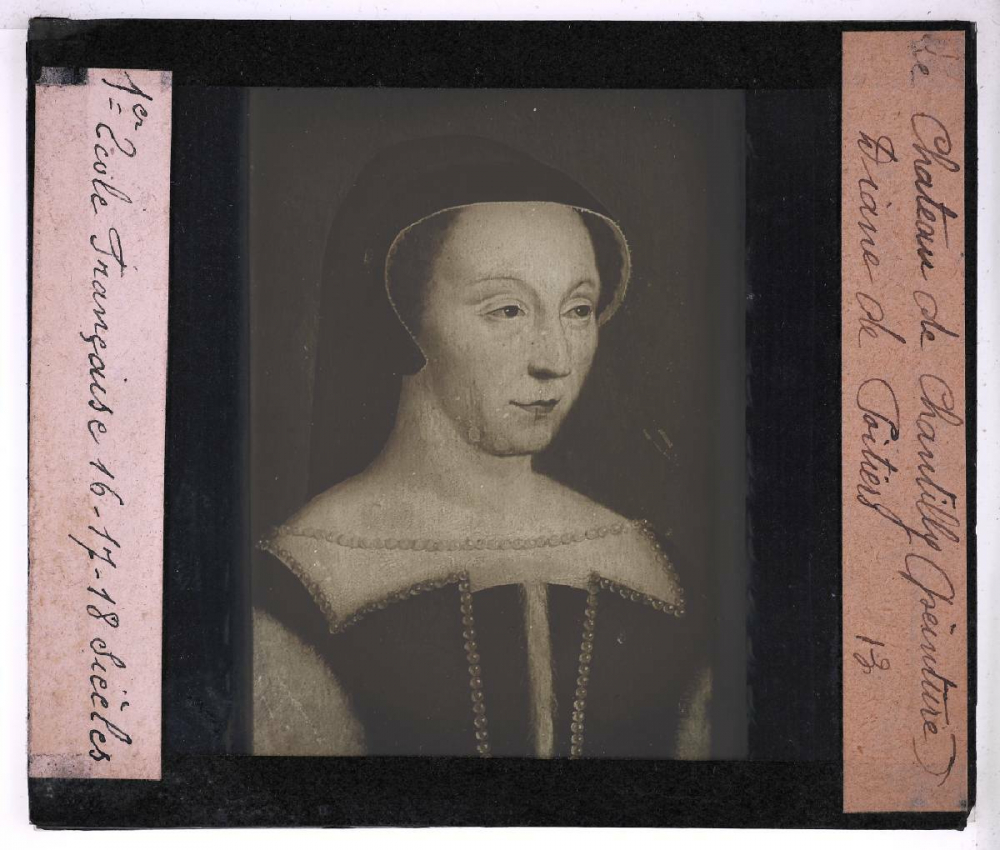 1er Ecole Française 16-17-18 Siècles
Le Chateau de Chantilly (peinture)
Diane de Poitiers 13